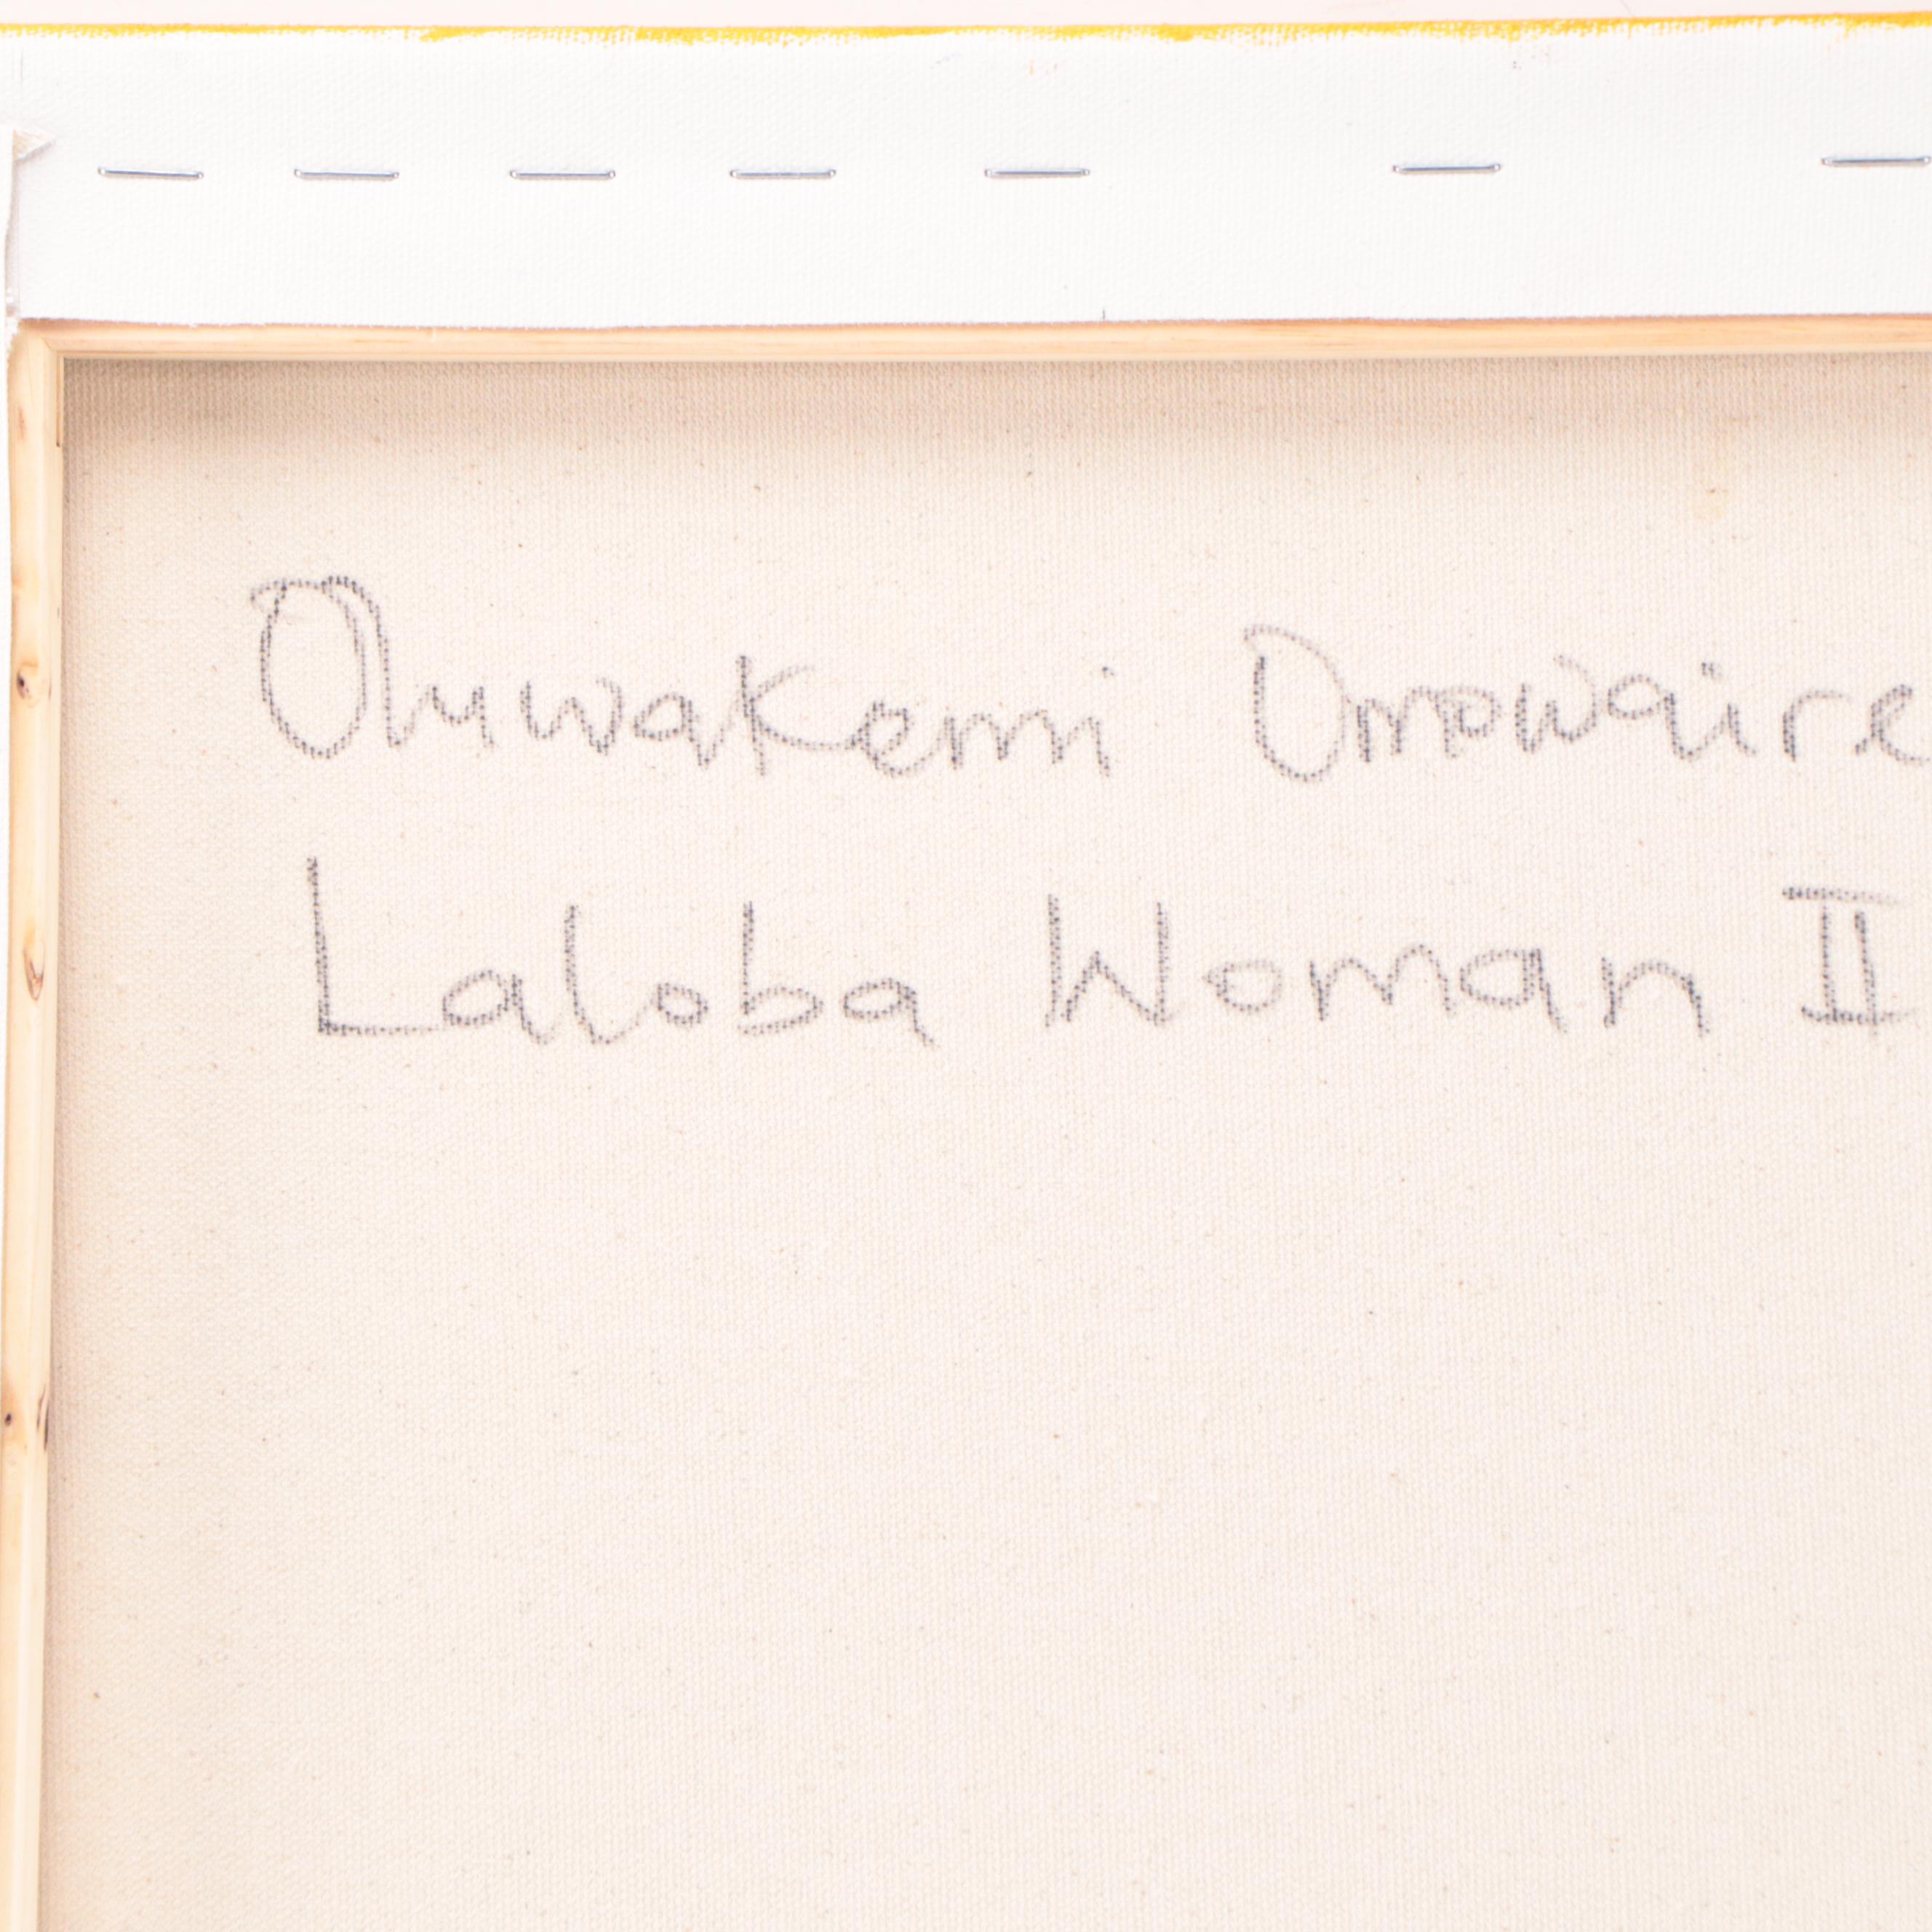 Oluwakemi Omowaire
Laloba Woman II